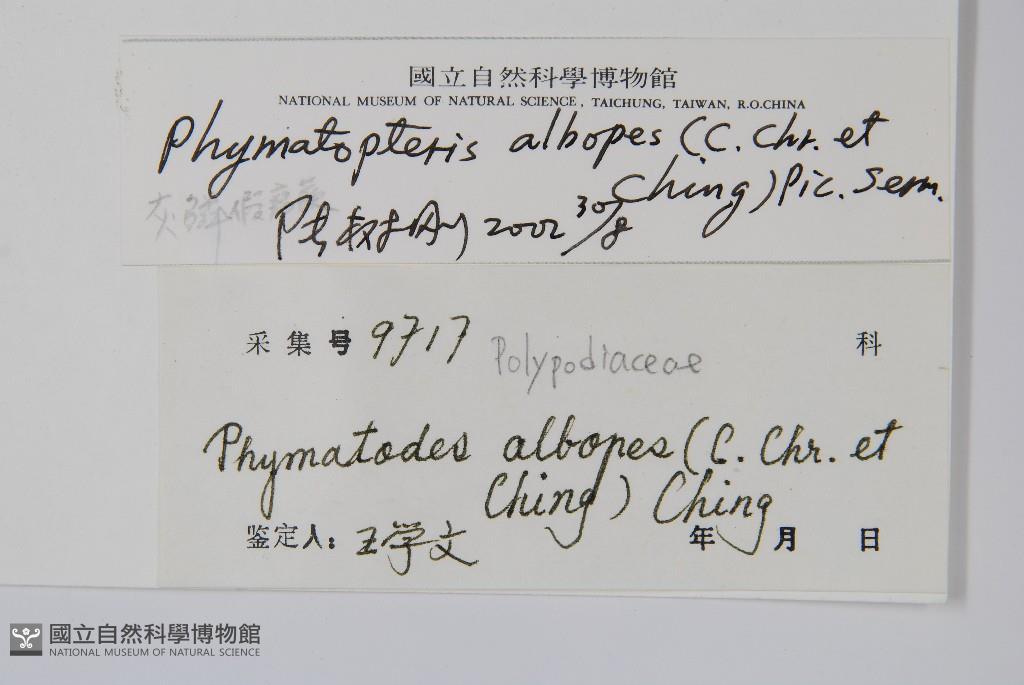 國立自然科學博物館
NATIONAL MUSEUM OF NATURAL SCIENCE, TAICHUNG, TAIWAN, R.O.CHINA
Phymatopteris albopes (C. Chr. et
Ching) Pic. Serm.
灰鱗假瘤蕨
陆树刚 2002 30/8
采集号 9717 Polypodiaceae 科
Phymatodes albopes (C. Chr. et
Ching) Ching
鉴定人: 王学文 年 月 日
國立自然科學博物館
NATIONAL MUSEUM OF NATURAL SCIENCE